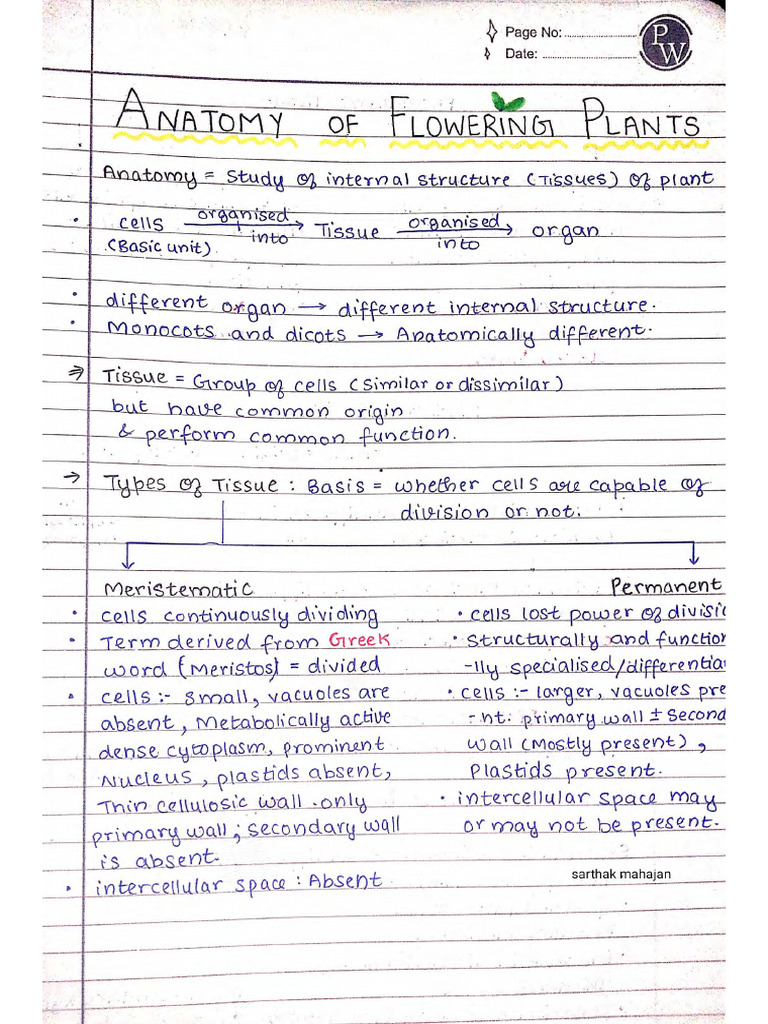 Page No:
Date:
PW
ANATOMY OF FLOWERING PLANTS
Anatomy = Study of internal structure (Tissues) of plant
• cells organised into → Tissue organised into → organ
(Basic unit)
• different organ → different internal structure.
• Monocots and dicots → Anatomically different.
⇒ Tissue = Group of cells (Similar or dissimilar)
but have common origin
& perform common function.
→ Types of Tissue : Basis = whether cells are capable of
division or not.
Meristematic
• cells continuously dividing
• Term derived from Greek
word (Meristos) = divided
• cells :- small, vacuoles are
absent, Metabolically active
dense cytoplasm, prominent
Nucleus, plastids absent,
Thin cellulosic wall. only
primary wall; secondary wall
is absent.
• intercellular space : Absent
Permanent
• cells lost power of divisi
• structurally and function
-lly specialised/differentia
• cells :- larger, vacuoles pre
-nt. primary wall ± Second
wall (Mostly present),
Plastids present.
• intercellular space may
or may not be present.
sarthak mahajan